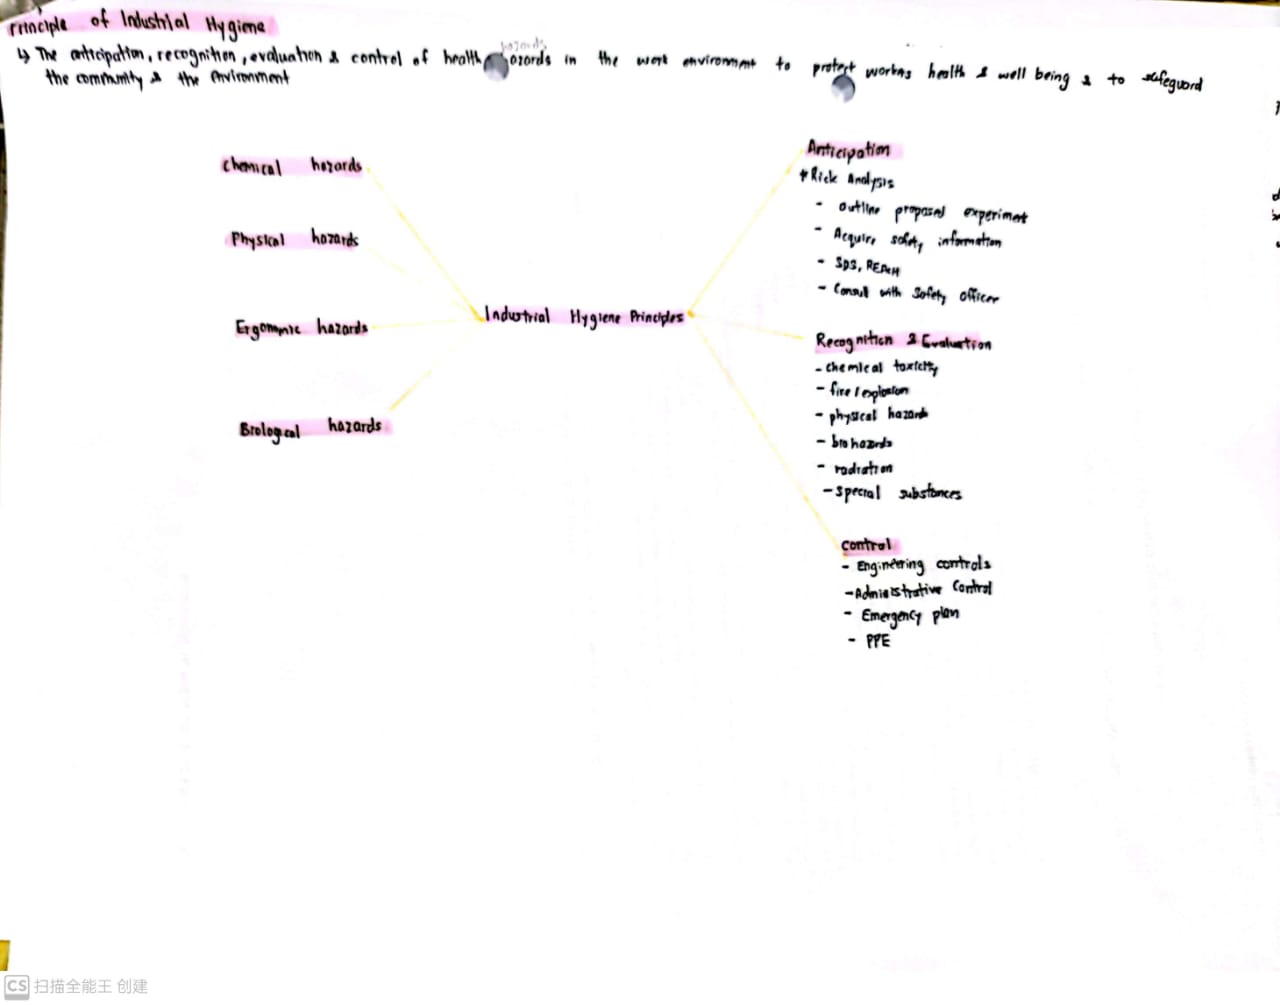 Principle of Industrial Hygiene
↳ The anticipation, recognition, evaluation & control of health hazards in the work environment to protect workers health & well being & to safeguard
hazards
the community & the environment
Chemical hazards
Physical hazards
Ergonomic hazards
Biological hazards
Industrial Hygiene Principles
Anticipation
* Risk Analysis
- Outline proposed experiment
- Acquire safety information
- SDS, REACH
- Consult with Safety Officer
Recognition & Evaluation
- chemical toxicity
- fire / explosion
- physical hazards
- bio hazards
- radiation
- special substances
Control
- Engineering controls
- Administrative Control
- Emergency plan
- PPE
CS 扫描全能王 创建